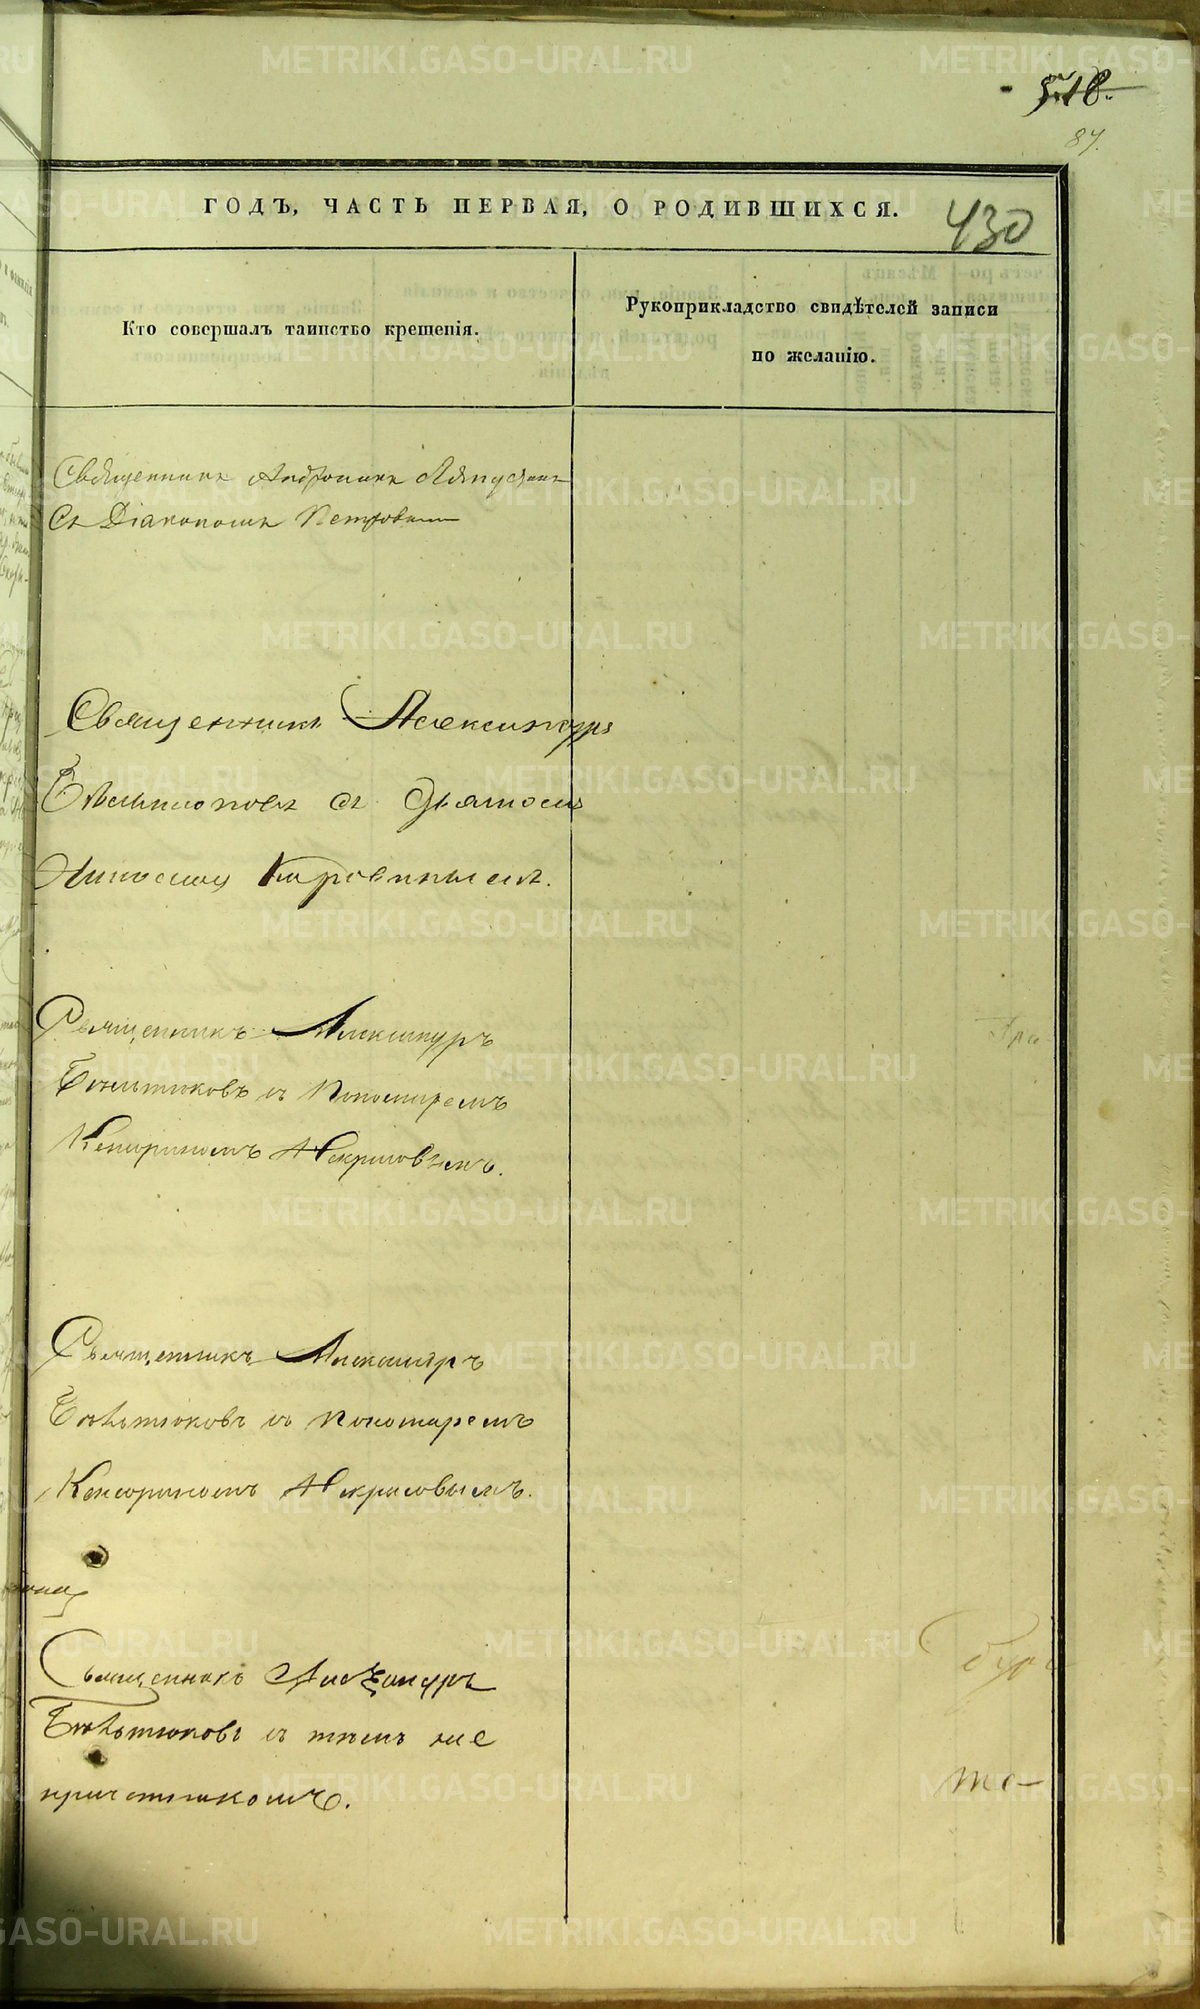 518.
87.
ГОДЪ, ЧАСТЬ ПЕРВАЯ, О РОДИВШИХСЯ.
430
Кто совершалъ таинство крещенія.
Рукоприкладство свидѣтелей записи
по желанію.
Священникъ Андроникъ Ляпустинъ
Съ Діакономъ Петровым
Священникъ Александръ
съ Дьякомъ
Священникъ Александръ
Бѣльтюковъ съ Пономаремъ
Кенсориномъ Некрасовымъ.
Священникъ Александръ
Бѣльтюковъ съ Пономаремъ
Кенсориномъ Некрасовымъ.
Священникъ Александръ
Бѣльтюковъ съ тѣмъ же
причетникомъ.
METRIKI.GASO-URAL.RU